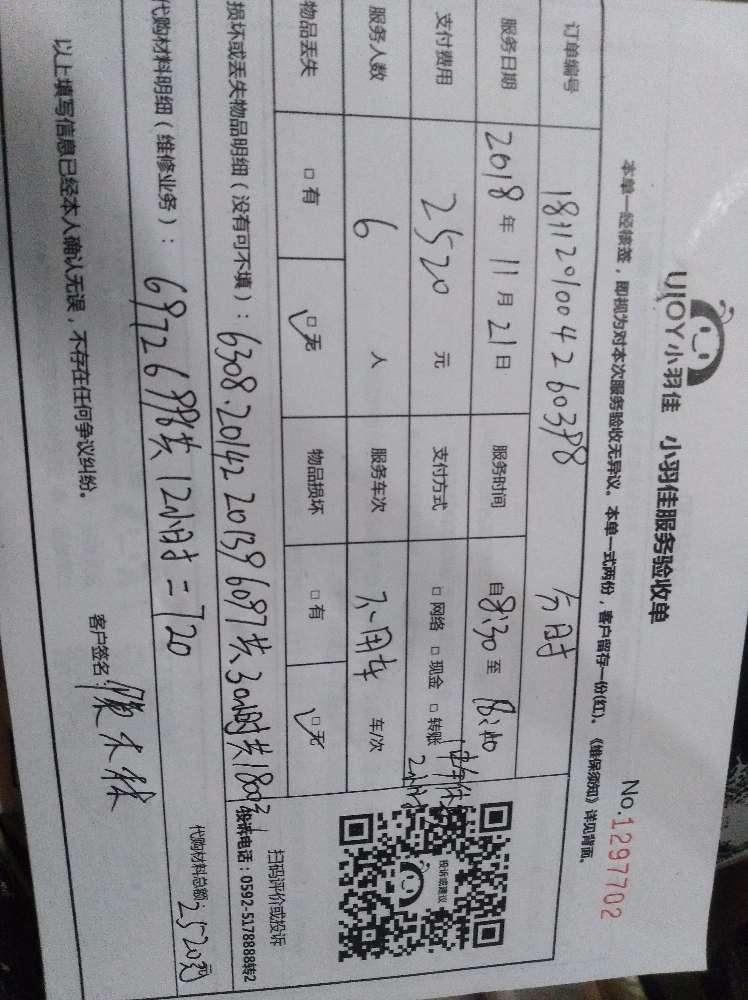 UJOY小羽佳 小羽佳服务验收单
No.1297702
本单一经核签，即视为对本次服务验收无异议。本单一式两份，客户留存一份(红)。《维保须知》详见背面。
订单编号 181120100426 0398
服务日期 2018 年 11 月 21 日 服务时间 自 8:30 至 18:40
支付费用 2520 元 支付方式 □ 网络 □ 现金 □ 转账
服务人数 6 人 服务车次 不用车 车/次
物品丢失 □ 有 □ 无 物品损坏 □ 有 □ 无
损坏或丢失物品明细（没有可不填）： 6308·20142 20139 6097共30小时共1800元
代购材料明细（维修业务）： 6972 6998共12小时=720
投诉或建议
扫码评价或投诉
投诉电话：0592-5178888转2
代购材料总额：2520元
以上填写信息已经本人确认无误，不存在任何争议纠纷。
客户签名：